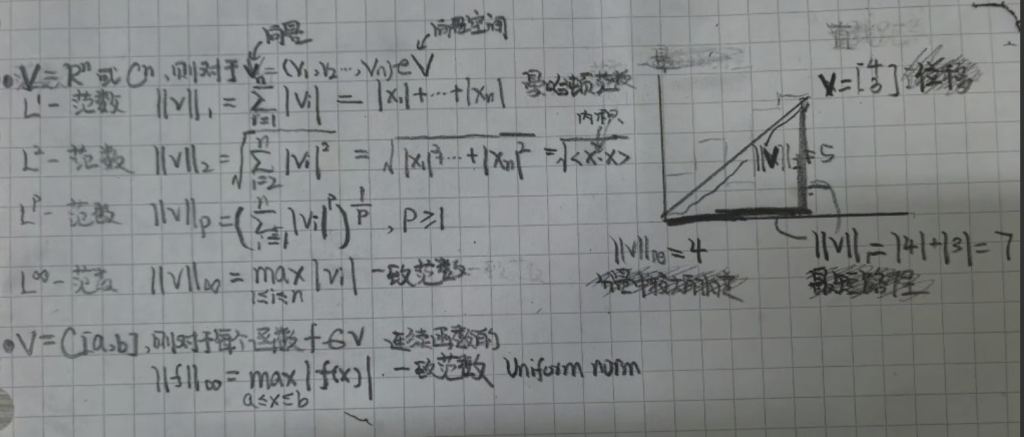 向量 向量空间
• V = Rⁿ 或 Cⁿ, 则对于 Vn = (V₁, V₂ …, Vn) ∈ V
L¹- 范数 ||V||₁ = \sum_{i=1}^{n} |Vi| = |x₁|+⋯+|xn|
内积
L²- 范数 ||V||₂ = \sqrt{\sum_{i=2}^{n} |Vi|²} = \sqrt{|x₁|²⋯+|xn|²} = \sqrt{<x·x>}
Lᴾ- 范数 ||V||p = (\sum_{i=1}^{n} |Vi|ᴾ)^{\frac{1}{P}}, P≥1
L∞- 范数 ||V||∞ = \max_{1≤i≤n} |Vi| 一致范数
• V = C[a,b], 则对于每个函数 f∈V 连续函数的
||f||∞ = \max_{a≤x≤b} |f(x)| 一致范数 Uniform norm
V = [4 3]
||V|| = 5
||V||∞ = 4
||V||₁ = |4|+|3| = 7